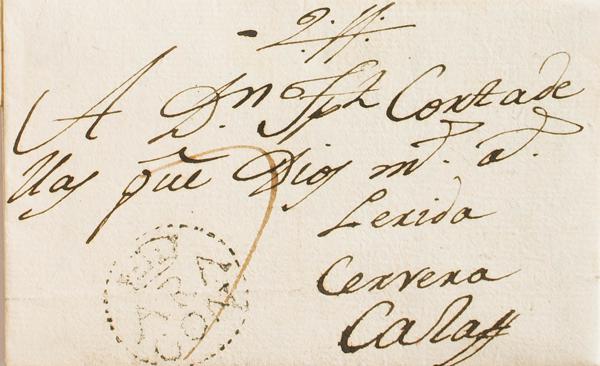 A Dn Jph Cortade
llas que Dios md. ad.
Lerida
Cervera
Calaff